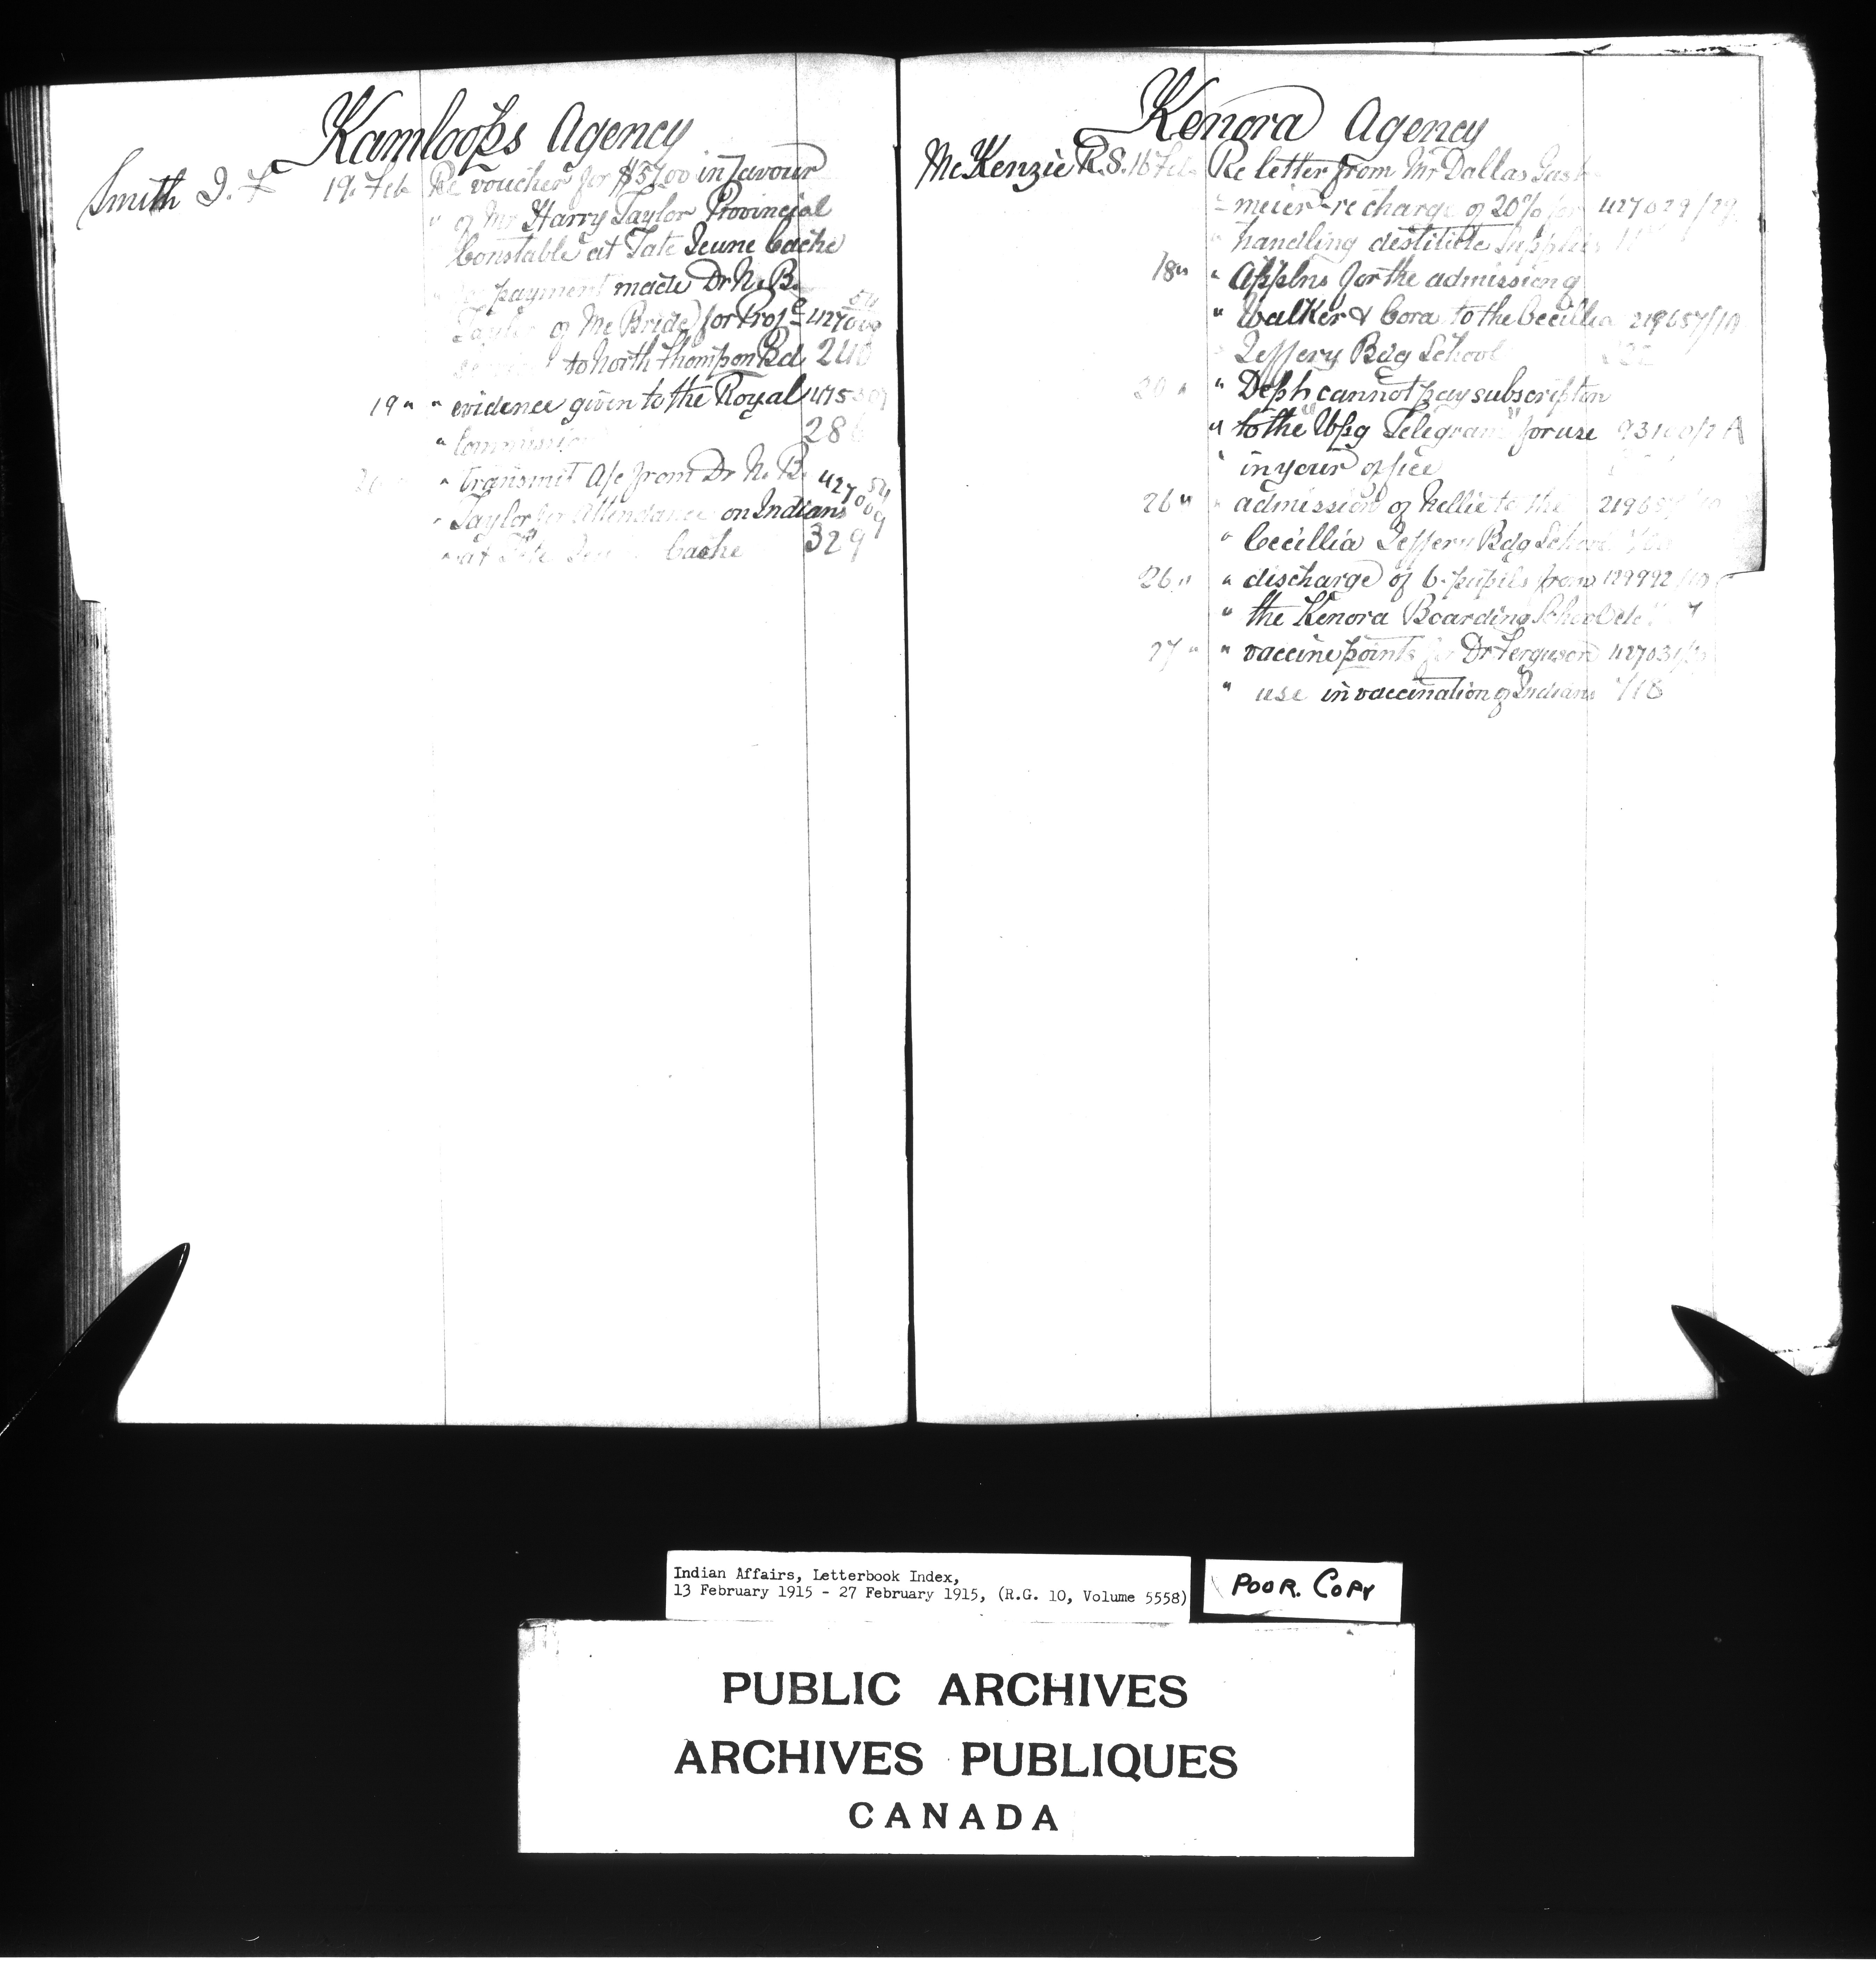 Kamloops Agency
Smith J. F 19. Feb Re voucher for $57.00 in favour
" of Mr Harry Taylor Provincial
Constable at Tate Jeune Cache
" payment made Dr N. B.
Taylor of Mc Bride for Profe 427009
to North Thompson Bd 240
19 " " evidence given to the Royal
" Commission 286
" transmit A/c from Dr N. B. 427009 54
" Taylor for Attendance on Indians
" at Tete Cache 329
Kenora Agency
McKenzie R.S. 16 Feb Re letter from Mr Dallas Gast
= meier - re charge of 20% for 427029/29
" handling destitute supplies
18 " " Applns for the admission of
" Walker & Cora to the Cecillia 219657/10
" Jeffery Bdg School
20 " " Deph cannot pay subscription
" to the "Wpg Telegram" for use
" in your office
26 " " admission of Nellie to the
" Cecillia Jeffery Bdg School
26 " " discharge of 6 pupils from
" the Kenora Boarding School
27 " " vaccine points for Dr Ferguson
" use in vaccination of Indians 718
Indian Affairs, Letterbook Index,
13 February 1915 - 27 February 1915, (R.G. 10, Volume 5558)
POOR. COPY
PUBLIC ARCHIVES
ARCHIVES PUBLIQUES
CANADA